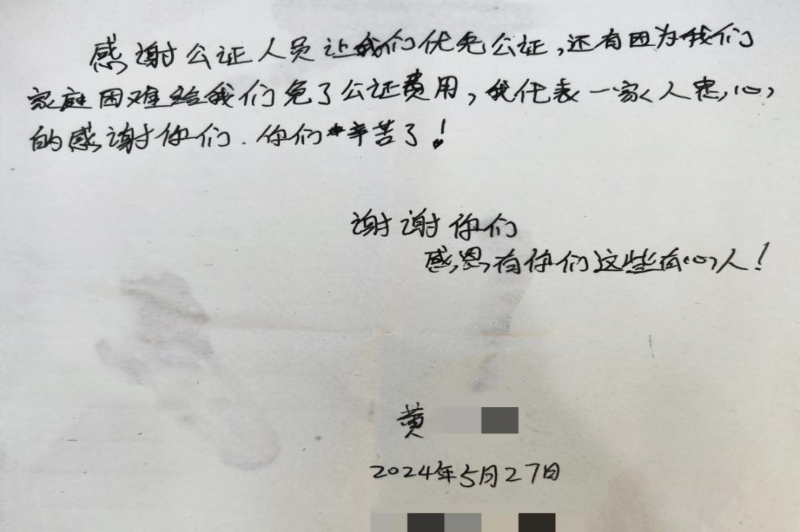 感谢公证人员让我们优免公证,还有因为我们
家庭困难给我们免了公证费用,我代表一家人忠心
的感谢你们.你们辛苦了!
谢谢你们
感恩有你们这些有心人!
黄
2024年5月27日